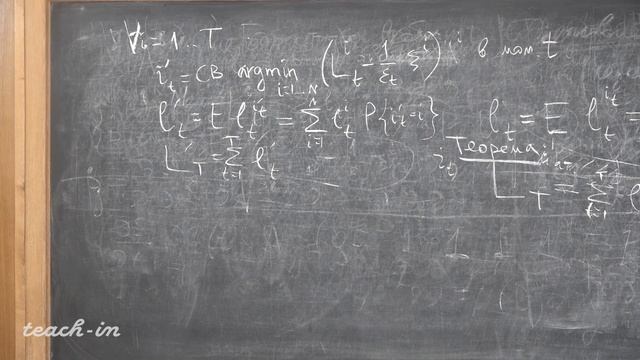 ∀i=1..T
i'_t = СВ argmin_{i=1..N} (L^i_t - 1/ε_t ξ^i) i в мом. t
l'_t = E l^{i'_t}_t = Σ_{i=1}^{N} l^i_t P{i'_t=i}
l_t = E l^{i_t}_t =
L'_T = Σ_{t=1}^{T} l'_t
Теорема
L_T = Σ_{t=1}^{T}
teach-in